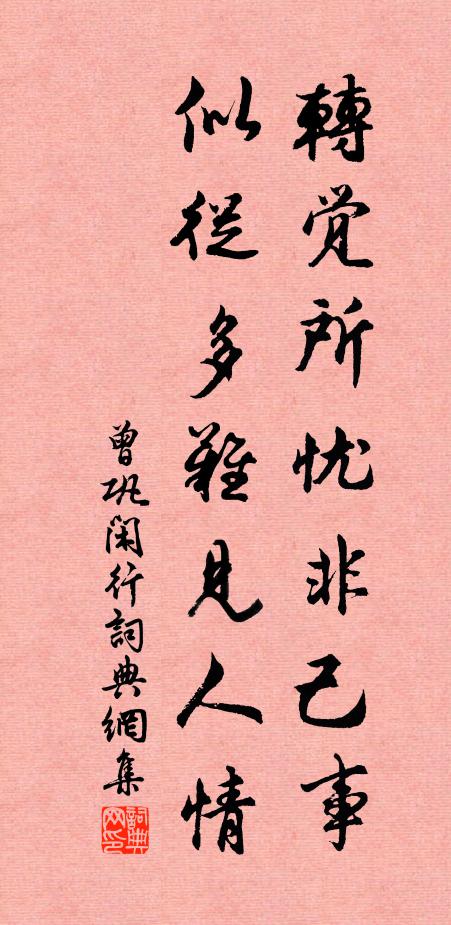 轉覚所忧非己事
似從多難見人情
曾巩闲行詞典網集
詞典网印